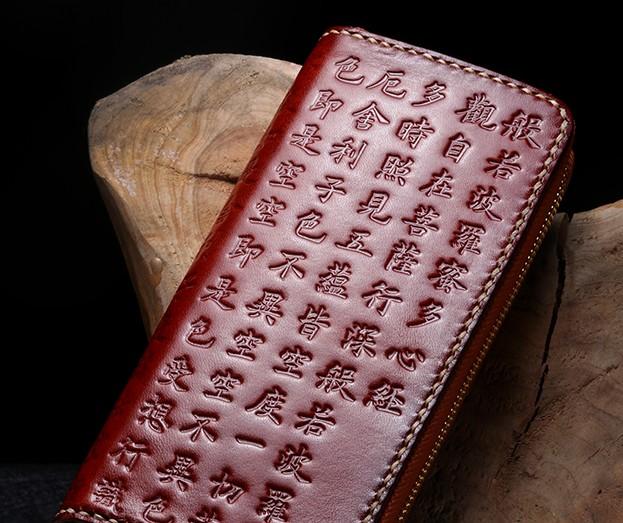 般若波羅蜜多心經
觀自在菩薩行深般若波羅
多時照見五蘊皆空度一切
厄舍利子色不異空空不異色
色即是空空即是色受想行識